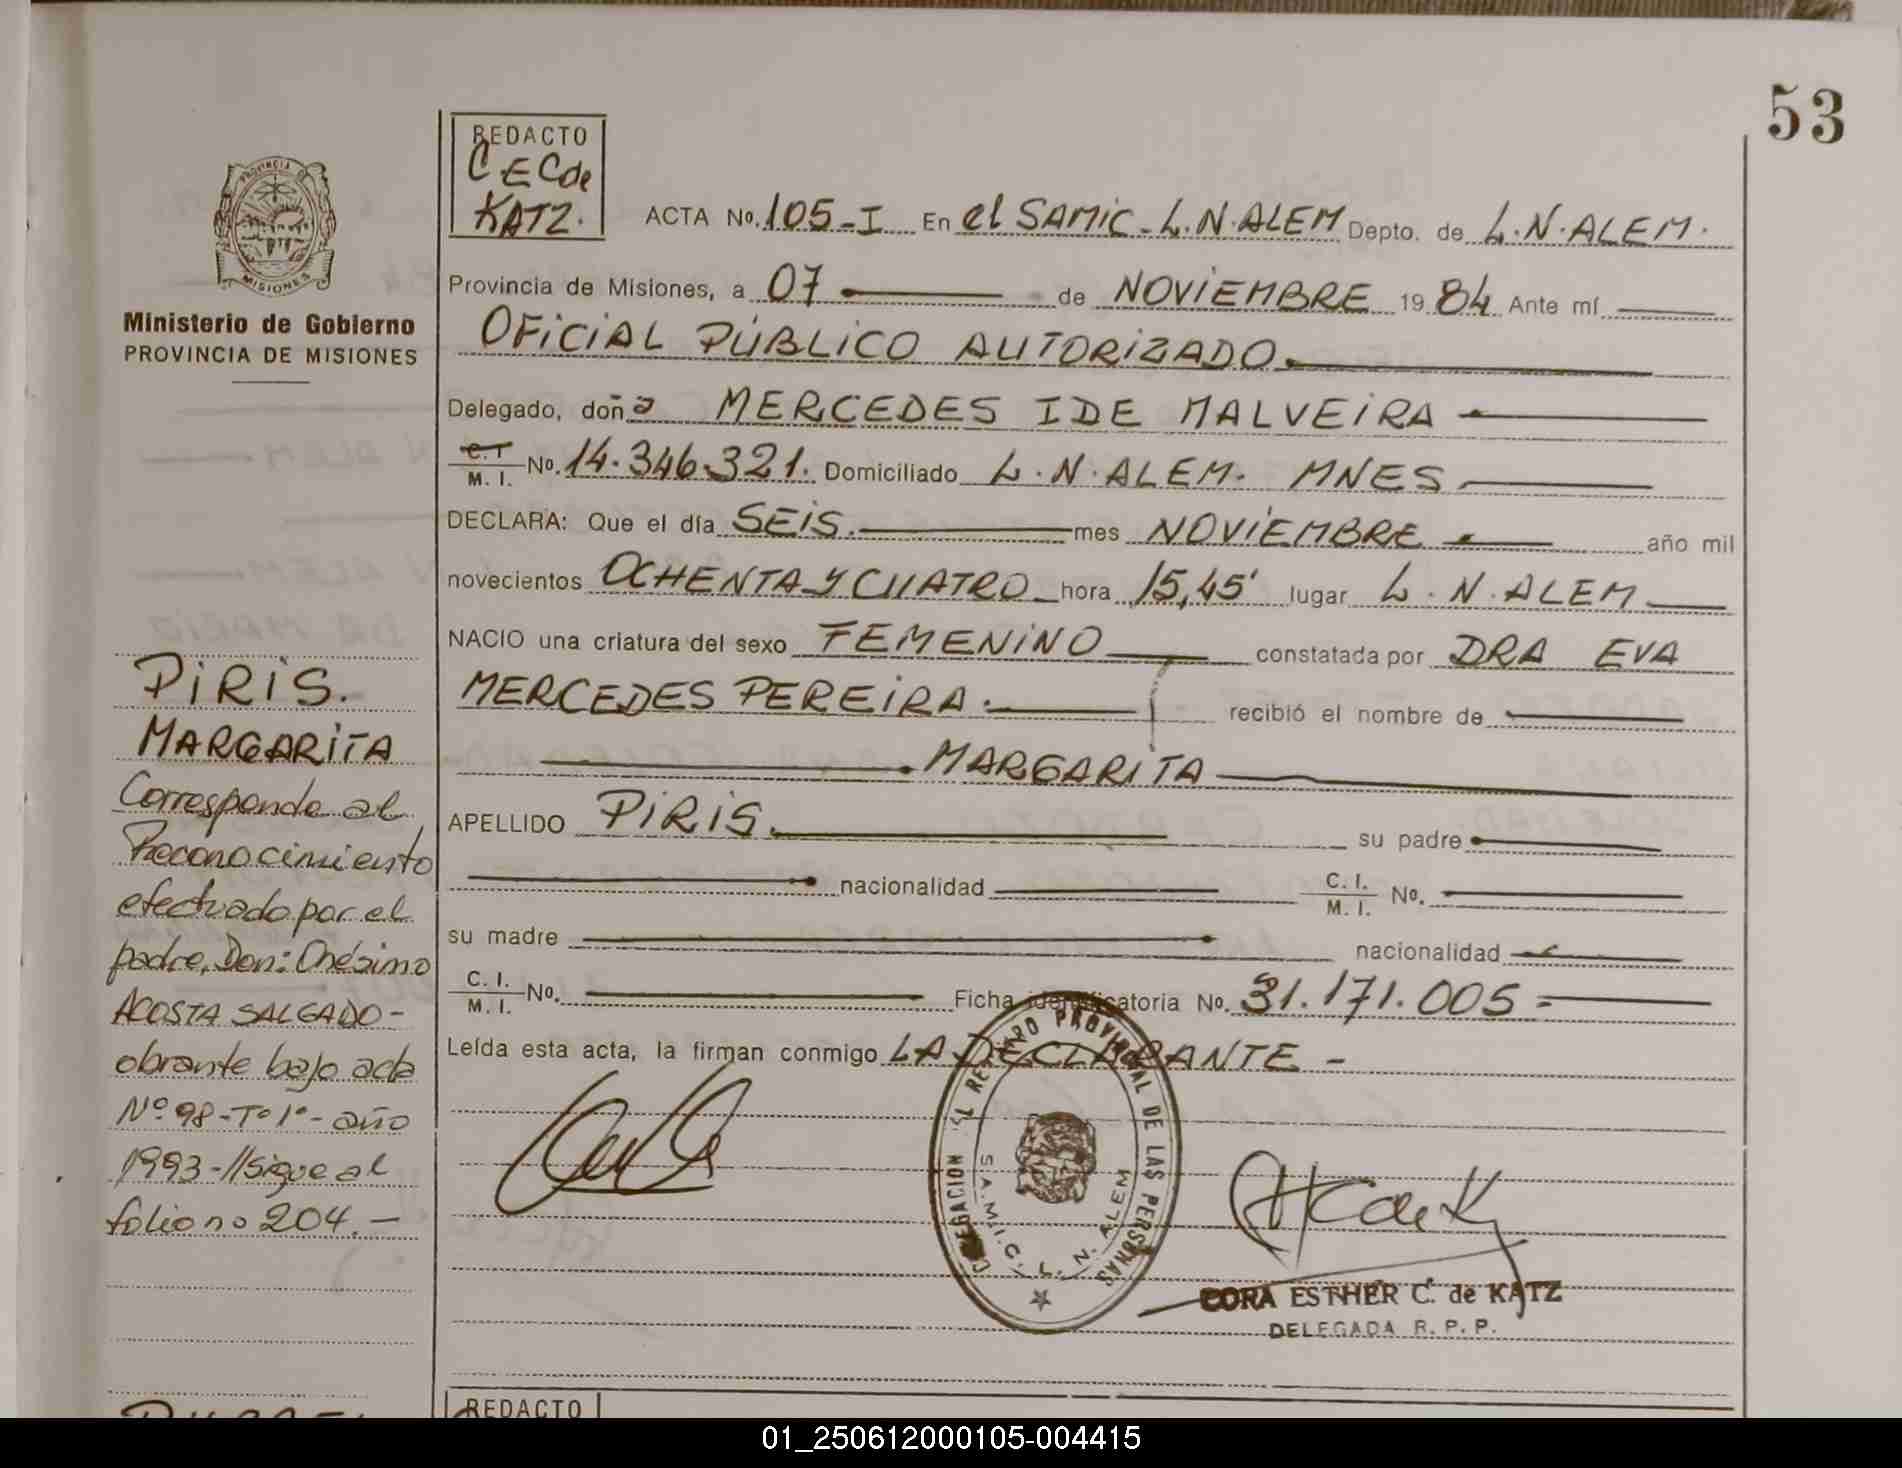 53
REDACTO
C E C de
KATZ.
ACTA No. 105-I En el SAMIC-L.N.ALEM Depto. de L.N.ALEM.
Provincia de Misiones, a 07 de NOVIEMBRE 19 84 Ante mí
OFICIAL PÚBLICO AUTORIZADO.
Delegado, doña MERCEDES IDE MALVEIRA
C.I
M. I. No. 14.346.321. Domiciliado L.N.ALEM. MNES
DECLARA: Que el día SEIS. mes NOVIEMBRE año mil
novecientos OCHENTA Y CUATRO hora 15,45' lugar L.N.ALEM
NACIO una criatura del sexo FEMENINO constatada por DRA EVA
MERCEDES PEREIRA. recibió el nombre de
MARGARITA
APELLIDO PIRIS. su padre
nacionalidad C. I.
M. I. No.
su madre nacionalidad
C. I.
M. I. No. Ficha identificatoria No. 31.171.005=
Leída esta acta, la firman conmigo LA DECLARANTE -
DELEGACION REGISTRO PROVINCIAL DE LAS PERSONAS
S.A.M.I.C. L. N. ALEM
CORA ESTHER C. de KATZ
DELEGADA R. P. P.
REDACTO
PROVINCIA DE
MISIONES
Ministerio de Gobierno
PROVINCIA DE MISIONES
PIRIS.
MARGARITA
Corresponde al
Reconocimiento
efectuado por el
padre, Don: Onésimo
ACOSTA SALGADO-
obrante bajo acta
Nº 98-Tº 1º- año
1993-//Sigue al
folio no 204.-
01_250612000105-004415